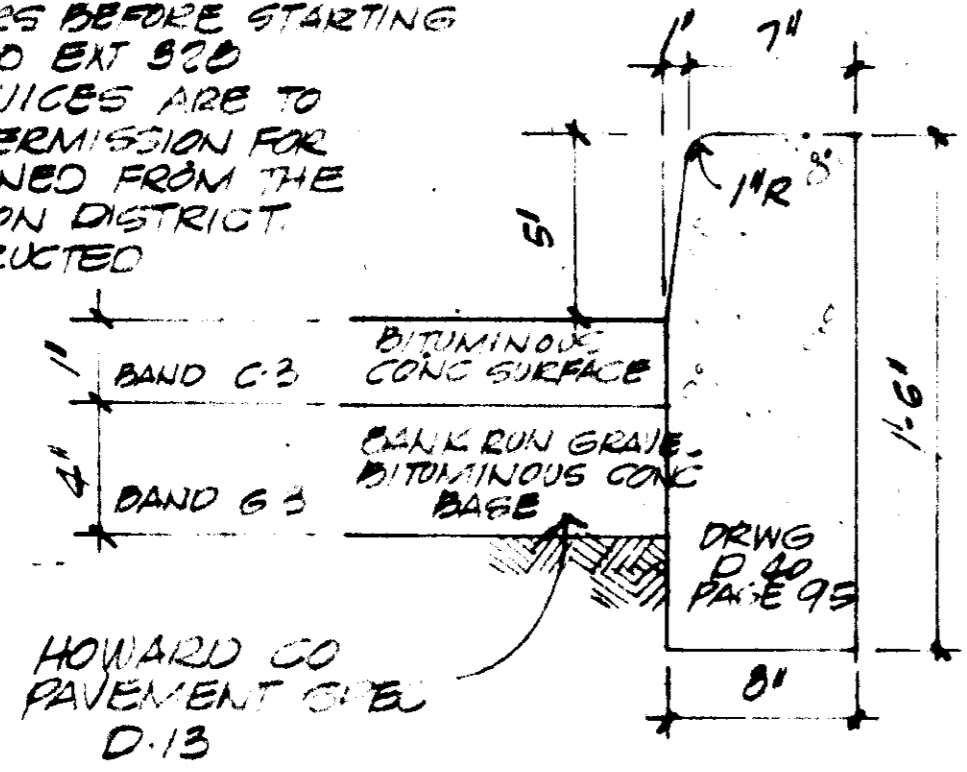 RS BEFORE STARTING
O EXT 328
VICES ARE TO
ERMISSION FOR
NED FROM THE
ON DISTRICT.
RUCTED
1"
7"
1"R
5"
1'-6"
1"
BAND C-3
BITUMINOUS
CONC SURFACE
4"
BAND G 3
BANK RUN GRAVEL
BITUMINOUS CONC
BASE
DRWG
PAGE
8"
HOWARD CO
PAVEMENT SPEC
D-13